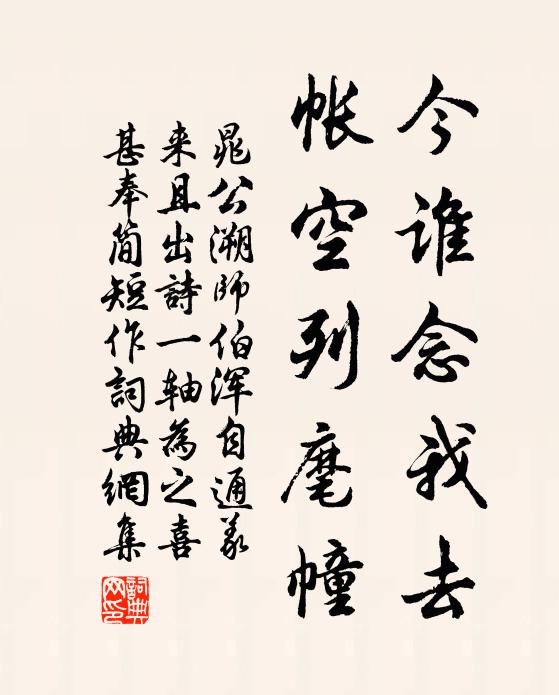 今谁念我去
帐空列麾幢
晁公溯師伯浑自通义
来且出詩一轴為之喜
甚奉简短作詞典網集